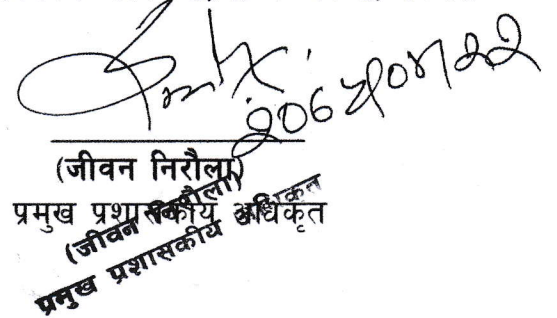 (जीवन निरौला)
प्रमुख प्रशासकीय अधिकृत
(जीवन निरौला)
प्रमुख प्रशासकीय अधिकृत